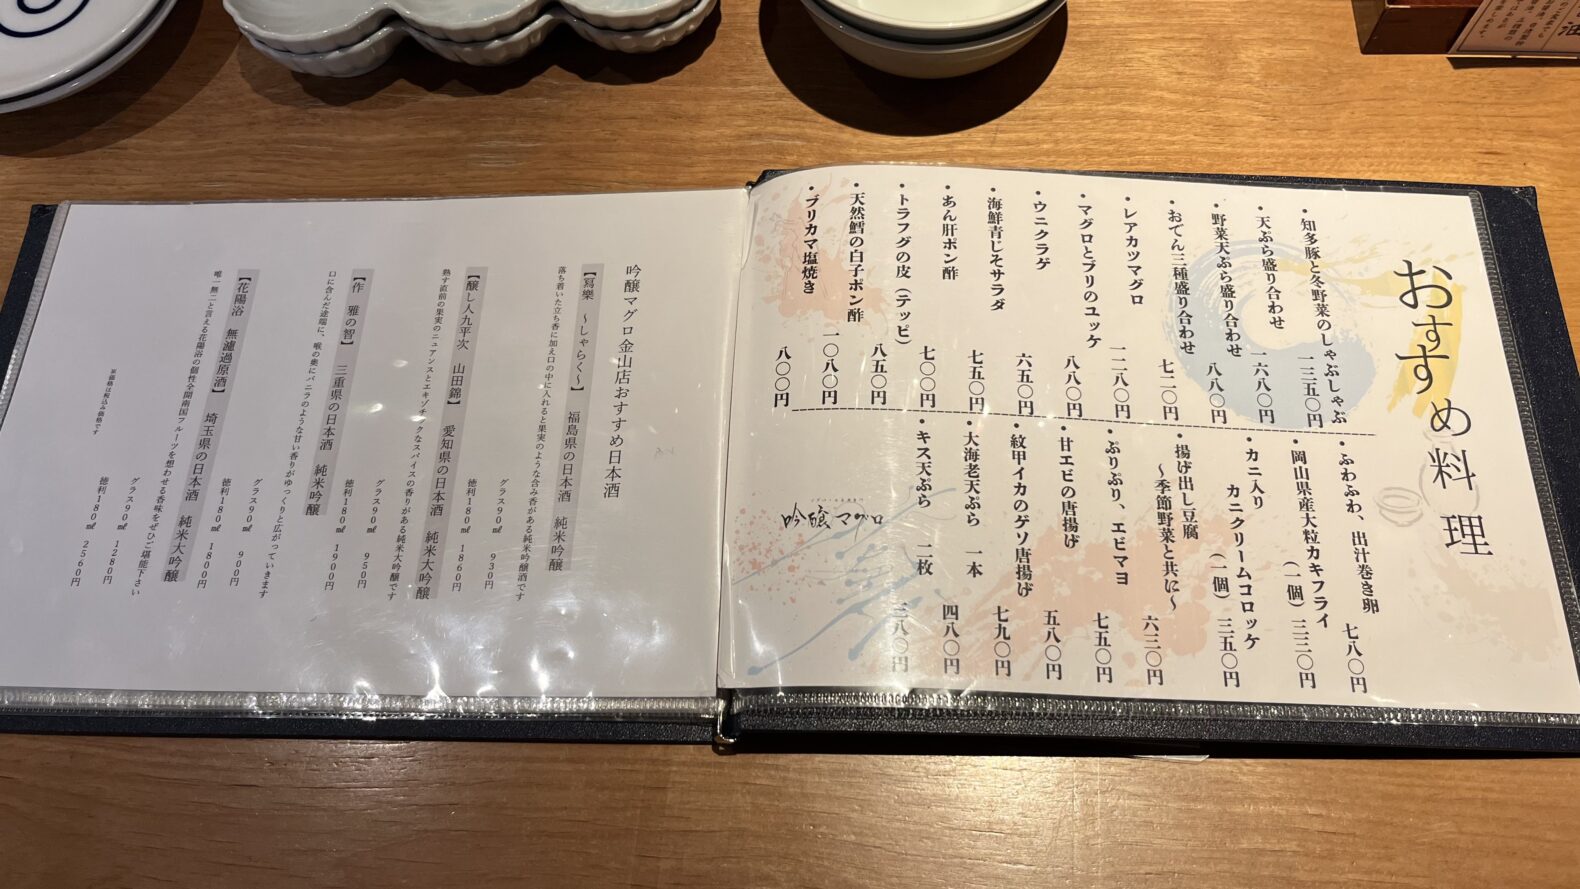 おすすめ料理
・知多豚と冬野菜のしゃぶしゃぶ 一三五〇円
・天ぷら盛り合わせ 一六八〇円
・野菜天ぷら盛り合わせ 八八〇円
・おでん三種盛り合わせ 七二〇円
・レアカツマグロ 一二八〇円
・マグロとブリのユッケ 八八〇円
・ウニクラゲ 六五〇円
・海鮮青じそサラダ 七五〇円
・あん肝ポン酢 七〇〇円
・トラフグの皮(テッピ) 八五〇円
・天然鱈の白子ポン酢 一〇八〇円
・ブリカマ塩焼き 八〇〇円
・ふわふわ、出汁巻き卵 七八〇円
・岡山県産大粒カキフライ
(一個) 三三〇円
・カニ入り
カニクリームコロッケ
(一個) 三五〇円
・揚げ出し豆腐
〜季節野菜と共に〜 六三〇円
・ぷりぷり、エビマヨ 七五〇円
・甘エビの唐揚げ 五八〇円
・紋甲イカのゲソ唐揚げ 七九〇円
・大海老天ぷら 一本 四八〇円
・キス天ぷら 二枚 三八〇円
吟醸マグロ
吟醸マグロ金山店おすすめ日本酒
【冩樂 〜しゃらく〜】 福島県の日本酒 純米吟醸
落ち着いた立ち香に加え口の中に入れると果実のような含み香がある純米吟醸酒です
グラス90㎖ 930円
徳利180㎖ 1860円
【醸し人九平次 山田錦】 愛知県の日本酒 純米大吟醸
熟す直前の果実のニュアンスとエキゾチックなスパイスの香りがある純米大吟醸です
グラス90㎖ 950円
徳利180㎖ 1900円
【作 雅の智】 三重県の日本酒 純米吟醸
口に含んだ途端に、喉の奥にバニラのような甘い香りがゆっくりと広がっていきます
グラス90㎖ 900円
徳利180㎖ 1800円
【花陽浴 無濾過原酒】 埼玉県の日本酒 純米大吟醸
唯一無二と言える花陽浴の個性全開南国フルーツを想わせる香味をぜひご堪能下さい
グラス90㎖ 1280円
徳利180㎖ 2560円
※価格は税込み価格です